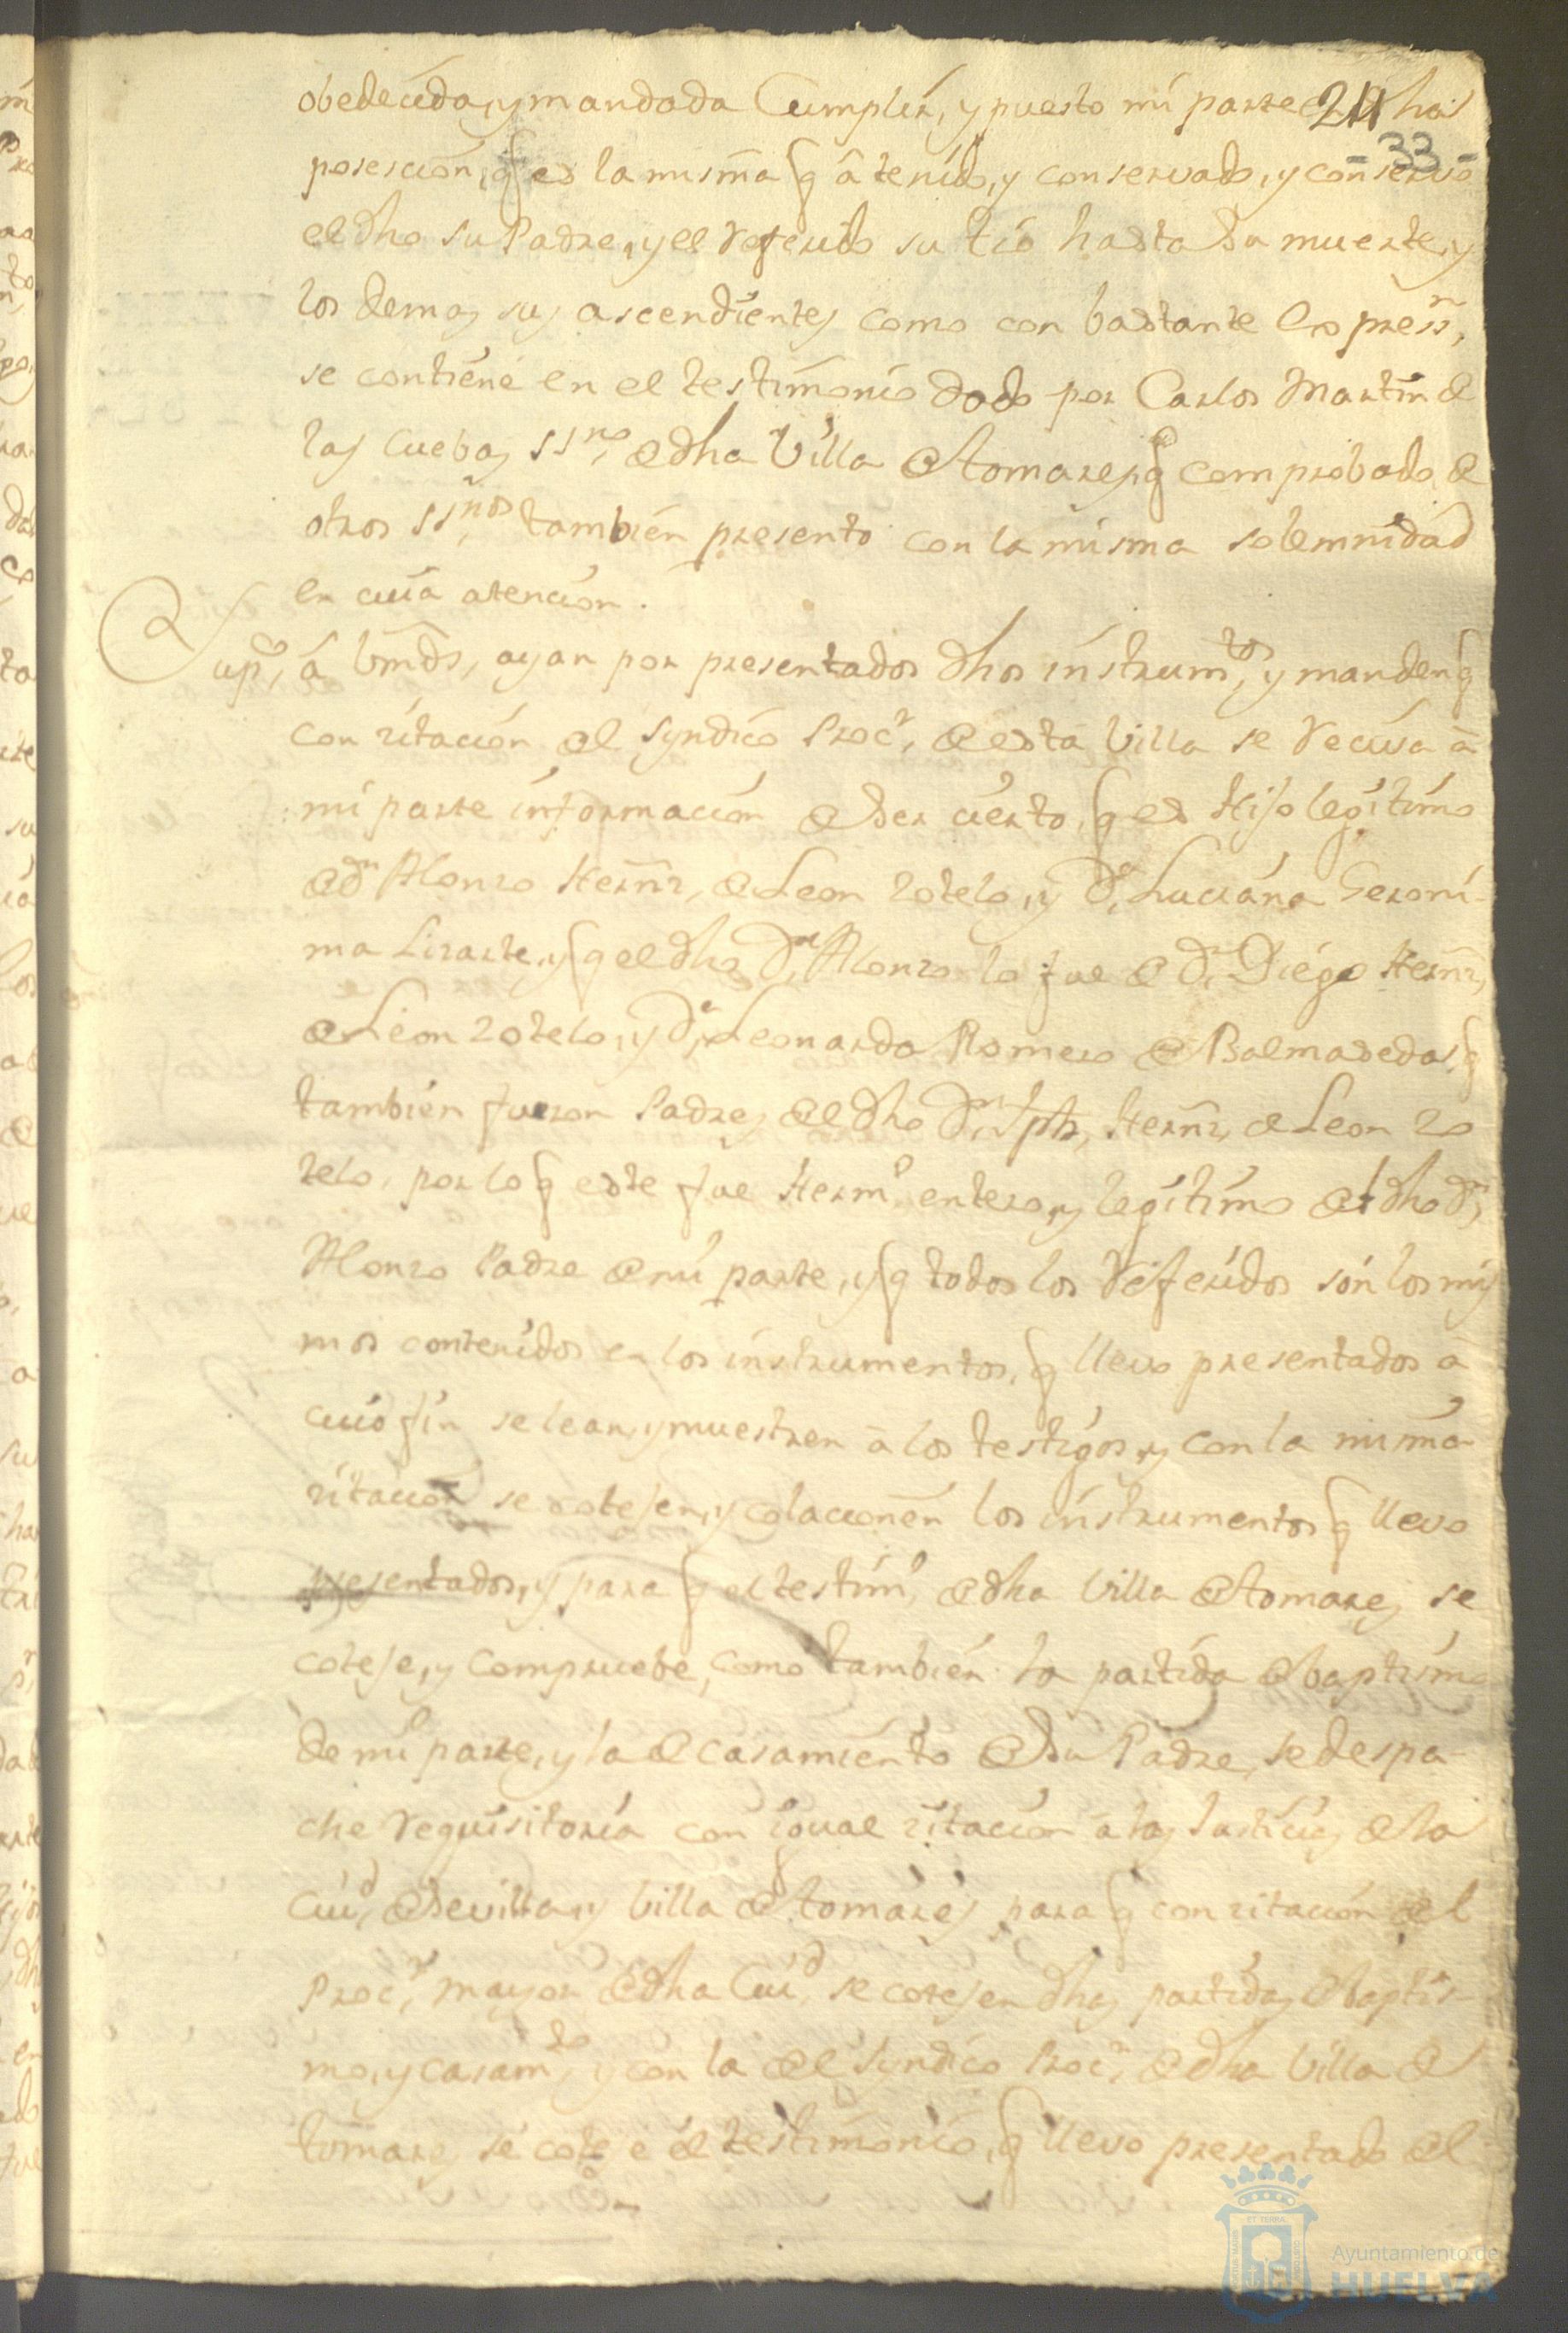 obedecida, y mandada Cumplir, y puesto mi parte en dha
24
33
posescion, q es la misma q â tenido, y conservado, y conservo
el dho su Padre, y el referido su tio hasta su muerte, y
los demas sus ascendientes como con bastante expressn,
se contiene en el testimonio dado por Carlos Martin de
las Cuebas ssno, de dha Villa de tomares, q comprobado de
otros ssnos, tambien presento con la misma solemnidad
en cuia atencion.
Supco, â Vmds, ayan por presentados dhos instrumtos, y manden q
con zitacion del Syndico Procr, de esta Villa se reciva â
mi parte informacion de ser cierto, q es Hijo legitimo
de dn Alonzo Hernnz, de Leon Zotelo, y Da, Luciana Geroni-
ma Lizarte, y q el dho Dn, Alonzo lo fue de dn, Diego Hernnz,
de Leon Zotelo, y Da, Leonarda Romero de Balmaseda, q
tambien fueron Padres del dho Dn, Jph, Hernnz, de Leon Zo
telo, por lo q este fue Hermo entero, y legitimo del dho dn,
Alonzo Padre de mi parte, y q todos los referidos són los mis
mos contenidos en los instrumentos, q llevo presentados â
cuio fin se lean, y muestren â los testigos, y con la misma
zitacion se cotejen, y colacionen los instrumentos q llevo
presentados, y para q el testimo, de dha Villa de tomares se
coteje, y compruebe, como tambien la partida de baptismo
de mi parte, y la de casamiento de su Padre, se despa-
che requisitoria con igual zitacion â las Justicias de la
Ciud, de Sevilla, y Villa de tomares para q con zitacion del
Procr, mayor de dha Ciud, se cotejen dhas partidas de baptis-
mo, y casamto, y con la del Syndico Procr, de dha Villa de
tomares se coteje el testimonio, q llevo presentado del
Ayuntamiento de
HUELVA